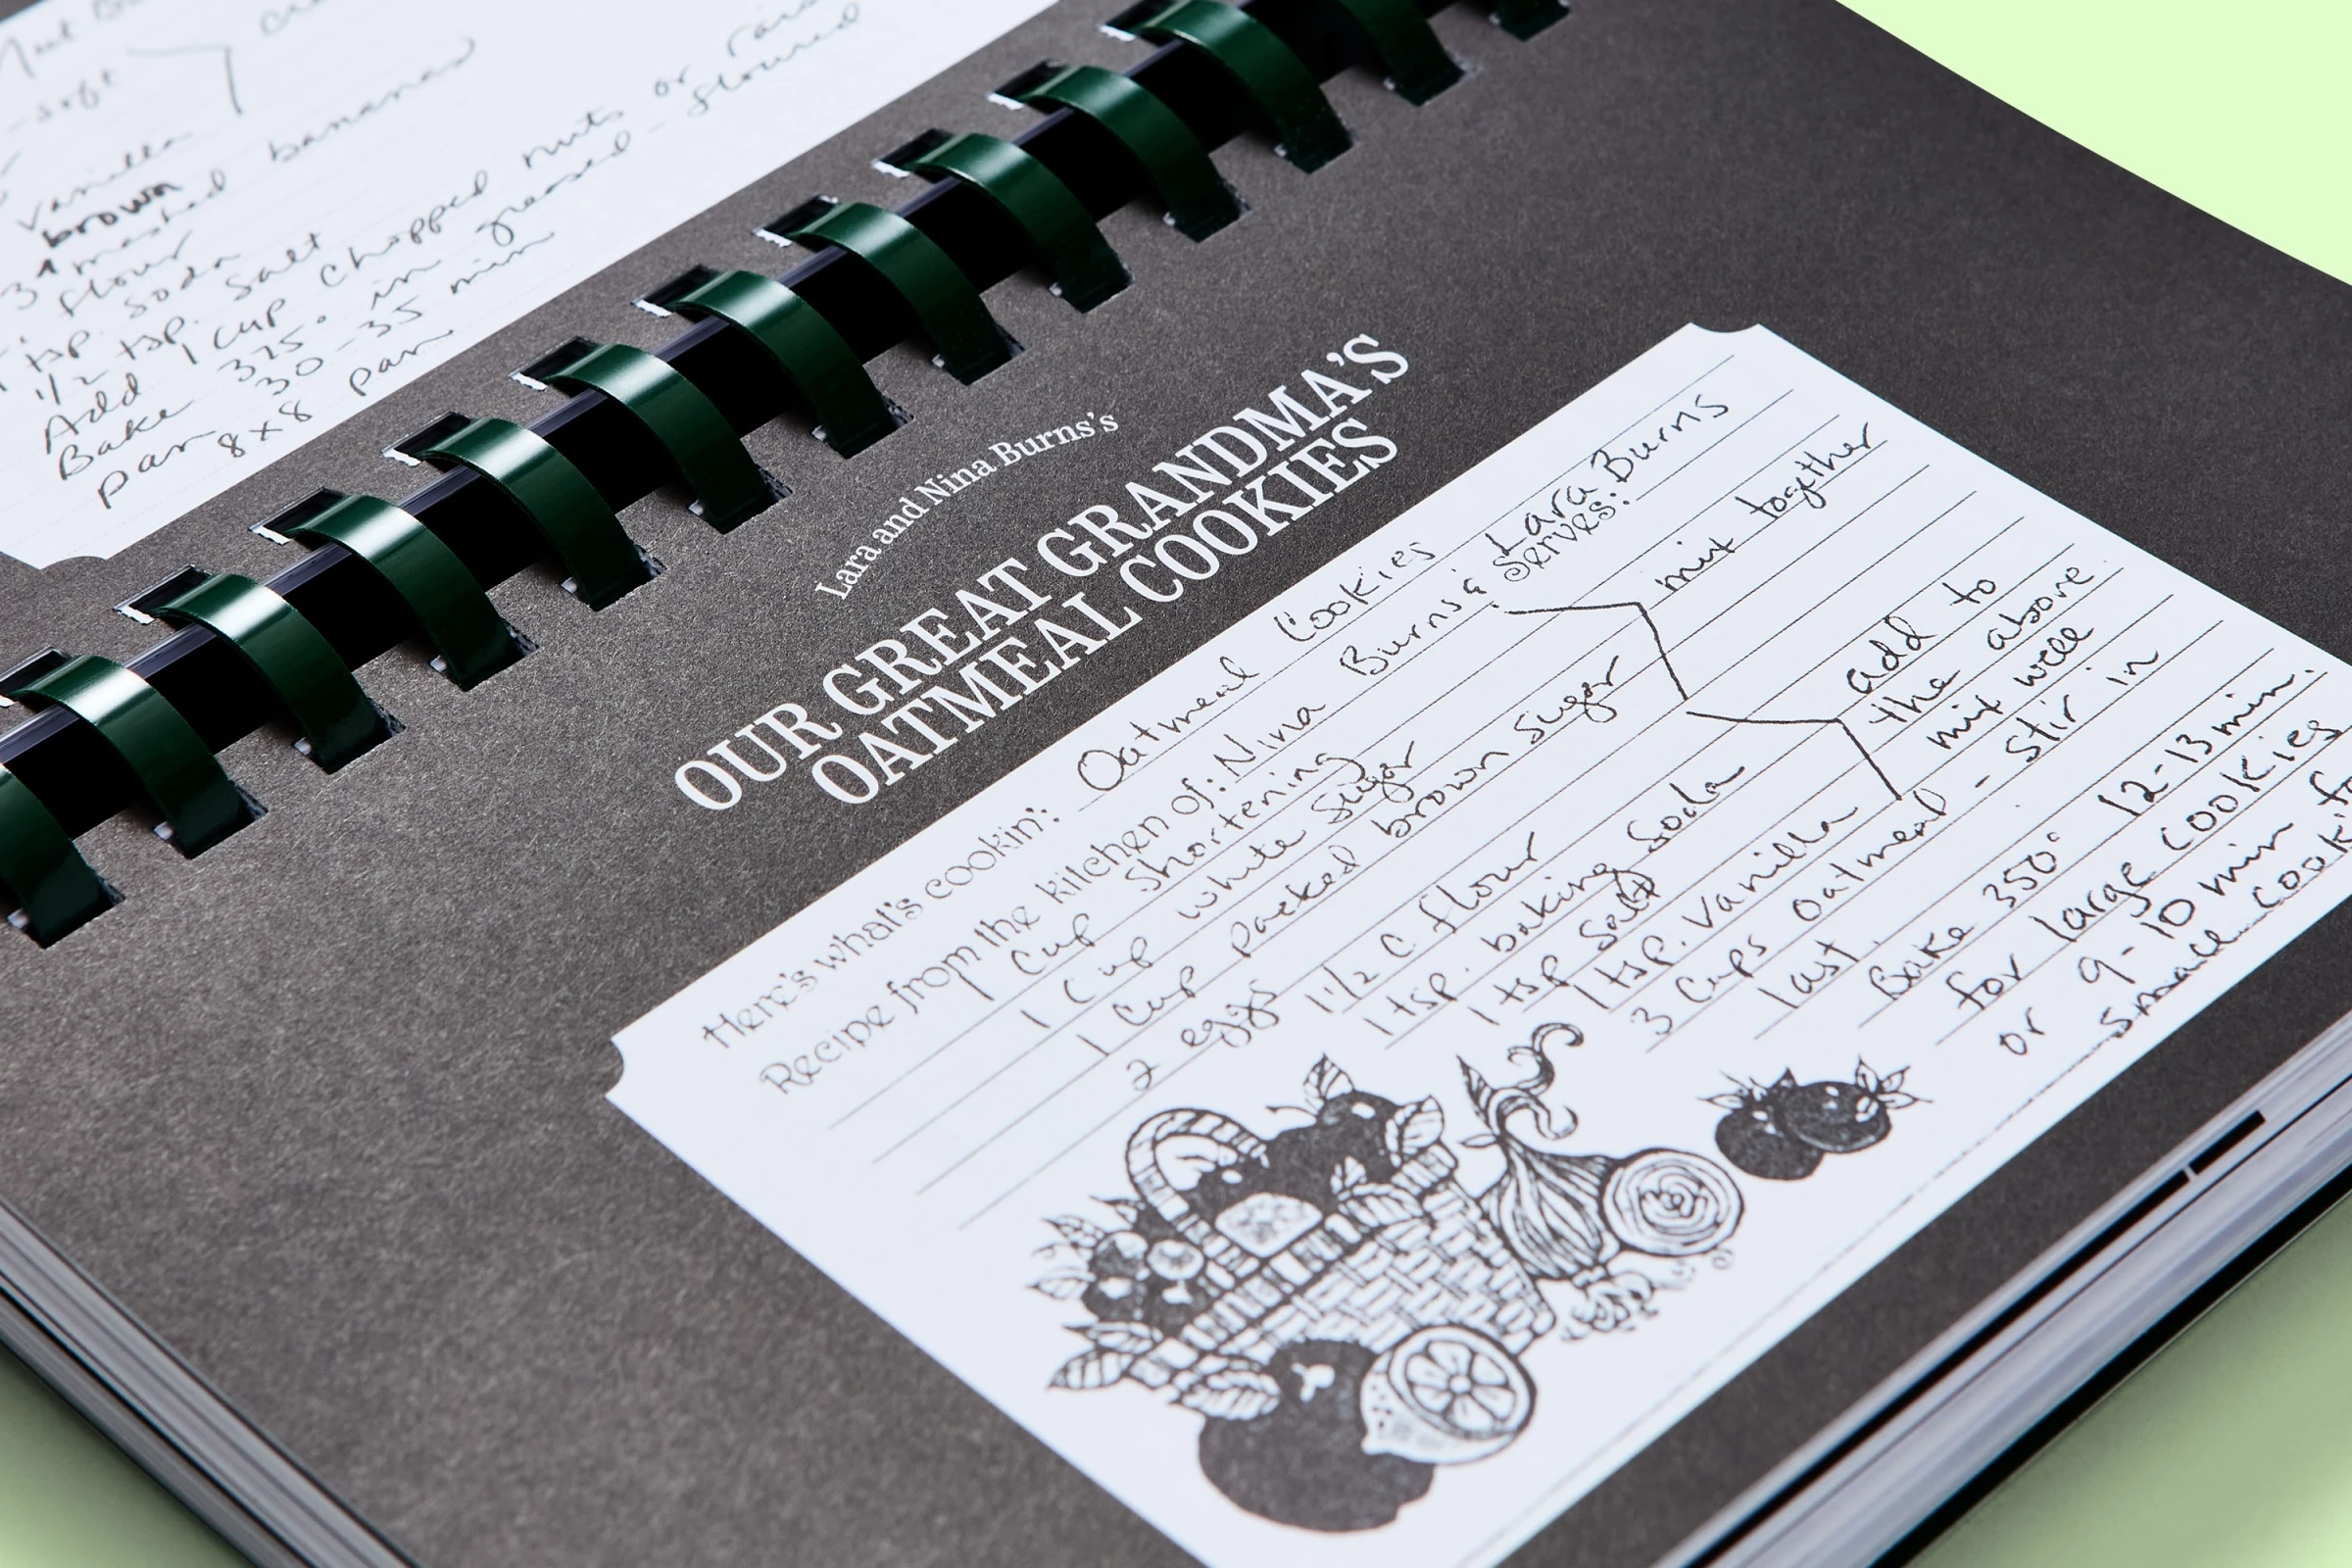 -soft
vanilla
brown
3 mashed bananas
flour
1 tsp. soda
1/2 tsp. salt
Add 1 cup chopped nuts or
Bake 375° in greased - floured
pan 30-35 min
8x8 pan
Lara and Nina Burns's
OUR GREAT GRANDMA'S
OATMEAL COOKIES
Here's what's cookin': Oatmeal Cookies
Recipe from the kitchen of: Nina Burns & Lara Burns
Serves:
1 Cup Shortening
1 Cup white sugar
1 Cup packed brown sugar
2 eggs
mix together
1 1/2 C. flour
1 tsp. baking soda
1 tsp salt
1 tsp. vanilla
add to
the above.
mix well
3 Cups Oatmeal - stir in
last.
Bake 350° 12-13 min.
for large cookies
or 9-10 min
small